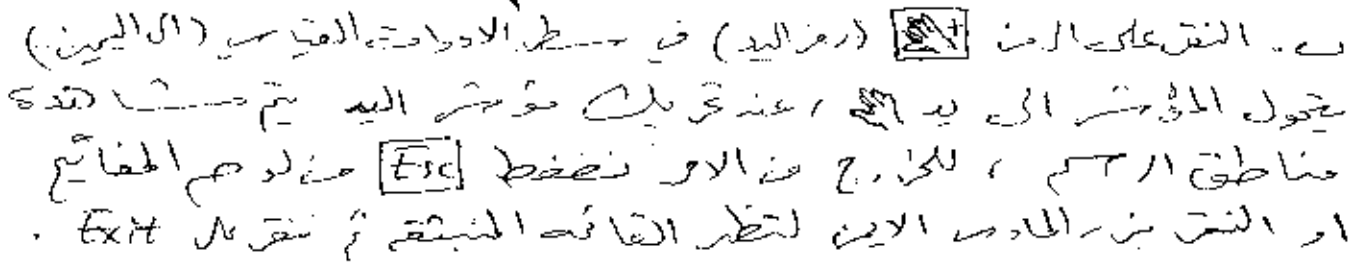 ب. النقر على الرمز (رمز اليد) في شريط الادوات القياسي (الى اليمين)
يتحول المؤشر الى يد ، عند تحريك مؤشر اليد يتم مشاهدة
مناطق الرسم ، للخروج من الامر نضغط Esc من لوحة المفاتيح
او النقر بزر الماوس الايمن لتظهر القائمة المنبثقة ثم ننقر على Exit .